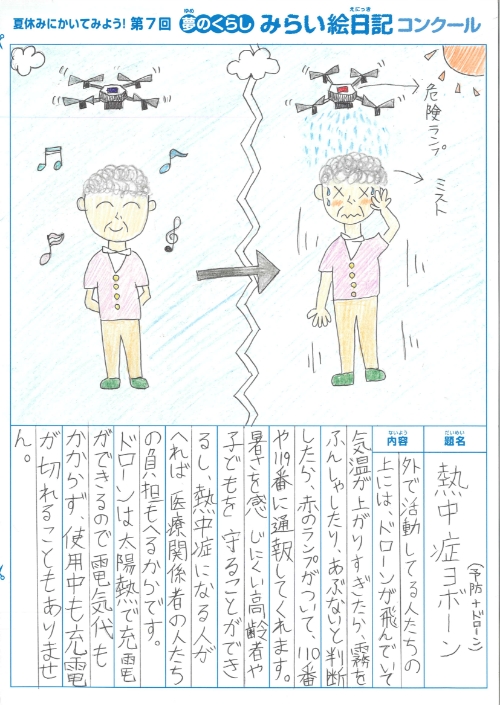 夏休みにかいてみよう! 第7回 夢のくらし みらい絵日記 コンクール
ゆめ
えにっき
危険ランプ
ミスト
だいめい
題名
熱中症ヨボーン
(予防+ドローン)
ないよう
内容
外で活動してる人たちの
上には、ドローンが飛んでいて
気温が上がりすぎたら、霧を
ふんしゃしたりあぶないと判断
したら、赤のランプがついて、110番
や119番に通報してくれます。
暑さを感じにくい高齢者や
子どもを守ることができ
るし、熱中症になる人が
へれば医療関係者の人たち
の負担もへるからです。
ドローンは太陽熱で充電
ができるので電気代も
かからず、使用中も充電
が切れることもありませ
ん。